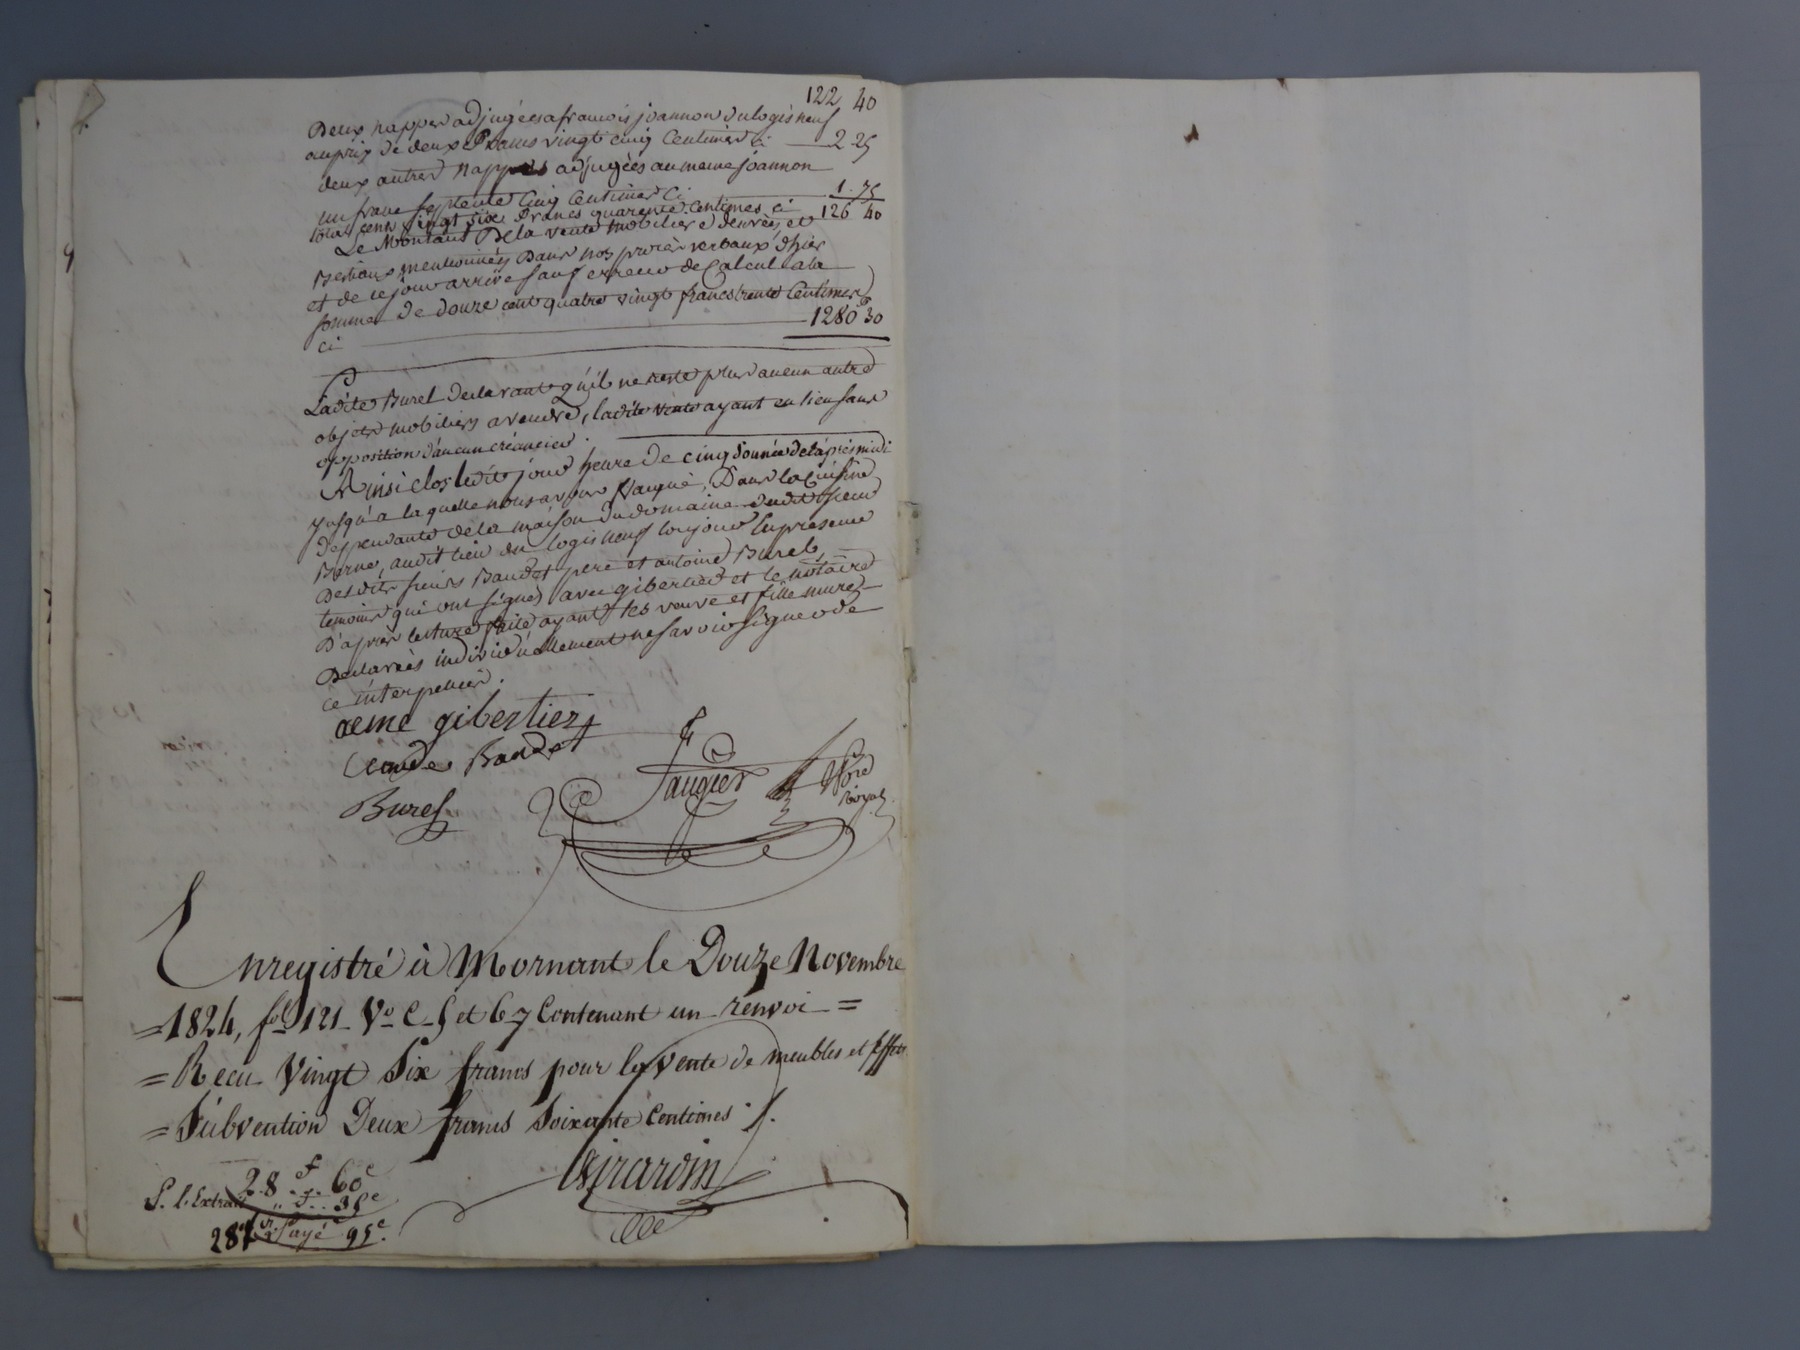 122 40
Deux nappes adjugées a francois joannon du logis neuf
au prix de deux francs vingt cinq centimes ci 2 25
deux autres nappes adjugées au meme joannon
un franc septente cinq centimes ci 1. 75
total cent vingt six francs quarente centimes ci 126 40
Le Montant de la vente mobiliere denrées et
Bestiaux mentionnés dans nos procès verbaux d'hier
et de ce jour arrive sauf erreur de Calcul a la
somme de douze cent quatre vingt francs trente Centimes
ci 1280 30
Ladite Burel declarant qu'il ne reste plus aucun autre
objets mobiliers a vendre, ladite vente ayant eu lieu sans
opposition d'aucun créancier.
Ainsi clos ledit jour heure de cinq sonnée de l'après midi
jusqu'a laquelle nous avons vaqué, Dans la Cuisine
dependante de la maison du domaine dudit sieur
Berne, audit lieu du logis neuf toujour en presence
Desdits sieurs Baudet pere et antoine Burel,
temoins qui ont signés avec gibertier et le notaire
D'après lecture faite ayant les veuve et fille mure
Declarées individuellement ne savoir signer de
ce interpellées.
aemé gibertier
Claude Baudet
Faugier
Nore
royal
Burel
Enregistré à Mornant le Douze Novembre
=1824, fol 121 Vo C. 5 et 6 7 Contenant un renvoi =
= Recu Vingt Six francs pour la Vente de meubles et Effets
= Subvention Deux francs Soixante Centimes ./.
28 f 60 c
S. l. Extrait " .. 35 c
28 f Payé 95 c.
Girardin